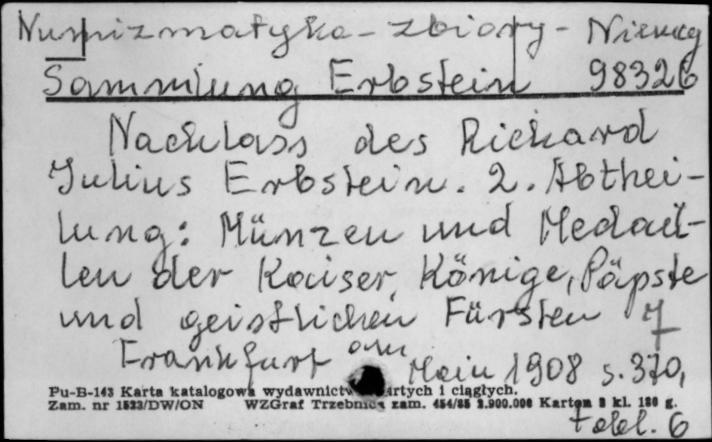 Numizmatyka - zbiory - Niemcy
Sammlung Erbstein 98326
Nachlass des Richard
Julius Erbstein. 2. Abthei-
lung: Münzen und Medail-
len der Kaiser, Könige, Päpste
und geistlichen Fürsten
Frankfurt am Main 1908 s. 370,
Pu-B-143 Karta katalogowa wydawnictw zwartych i ciągłych.
Zam. nr 1523/DW/ON WZGraf Trzebnica zam. 454/85 2.900.000 Karton 3 kl. 180 g.
tabl. 6